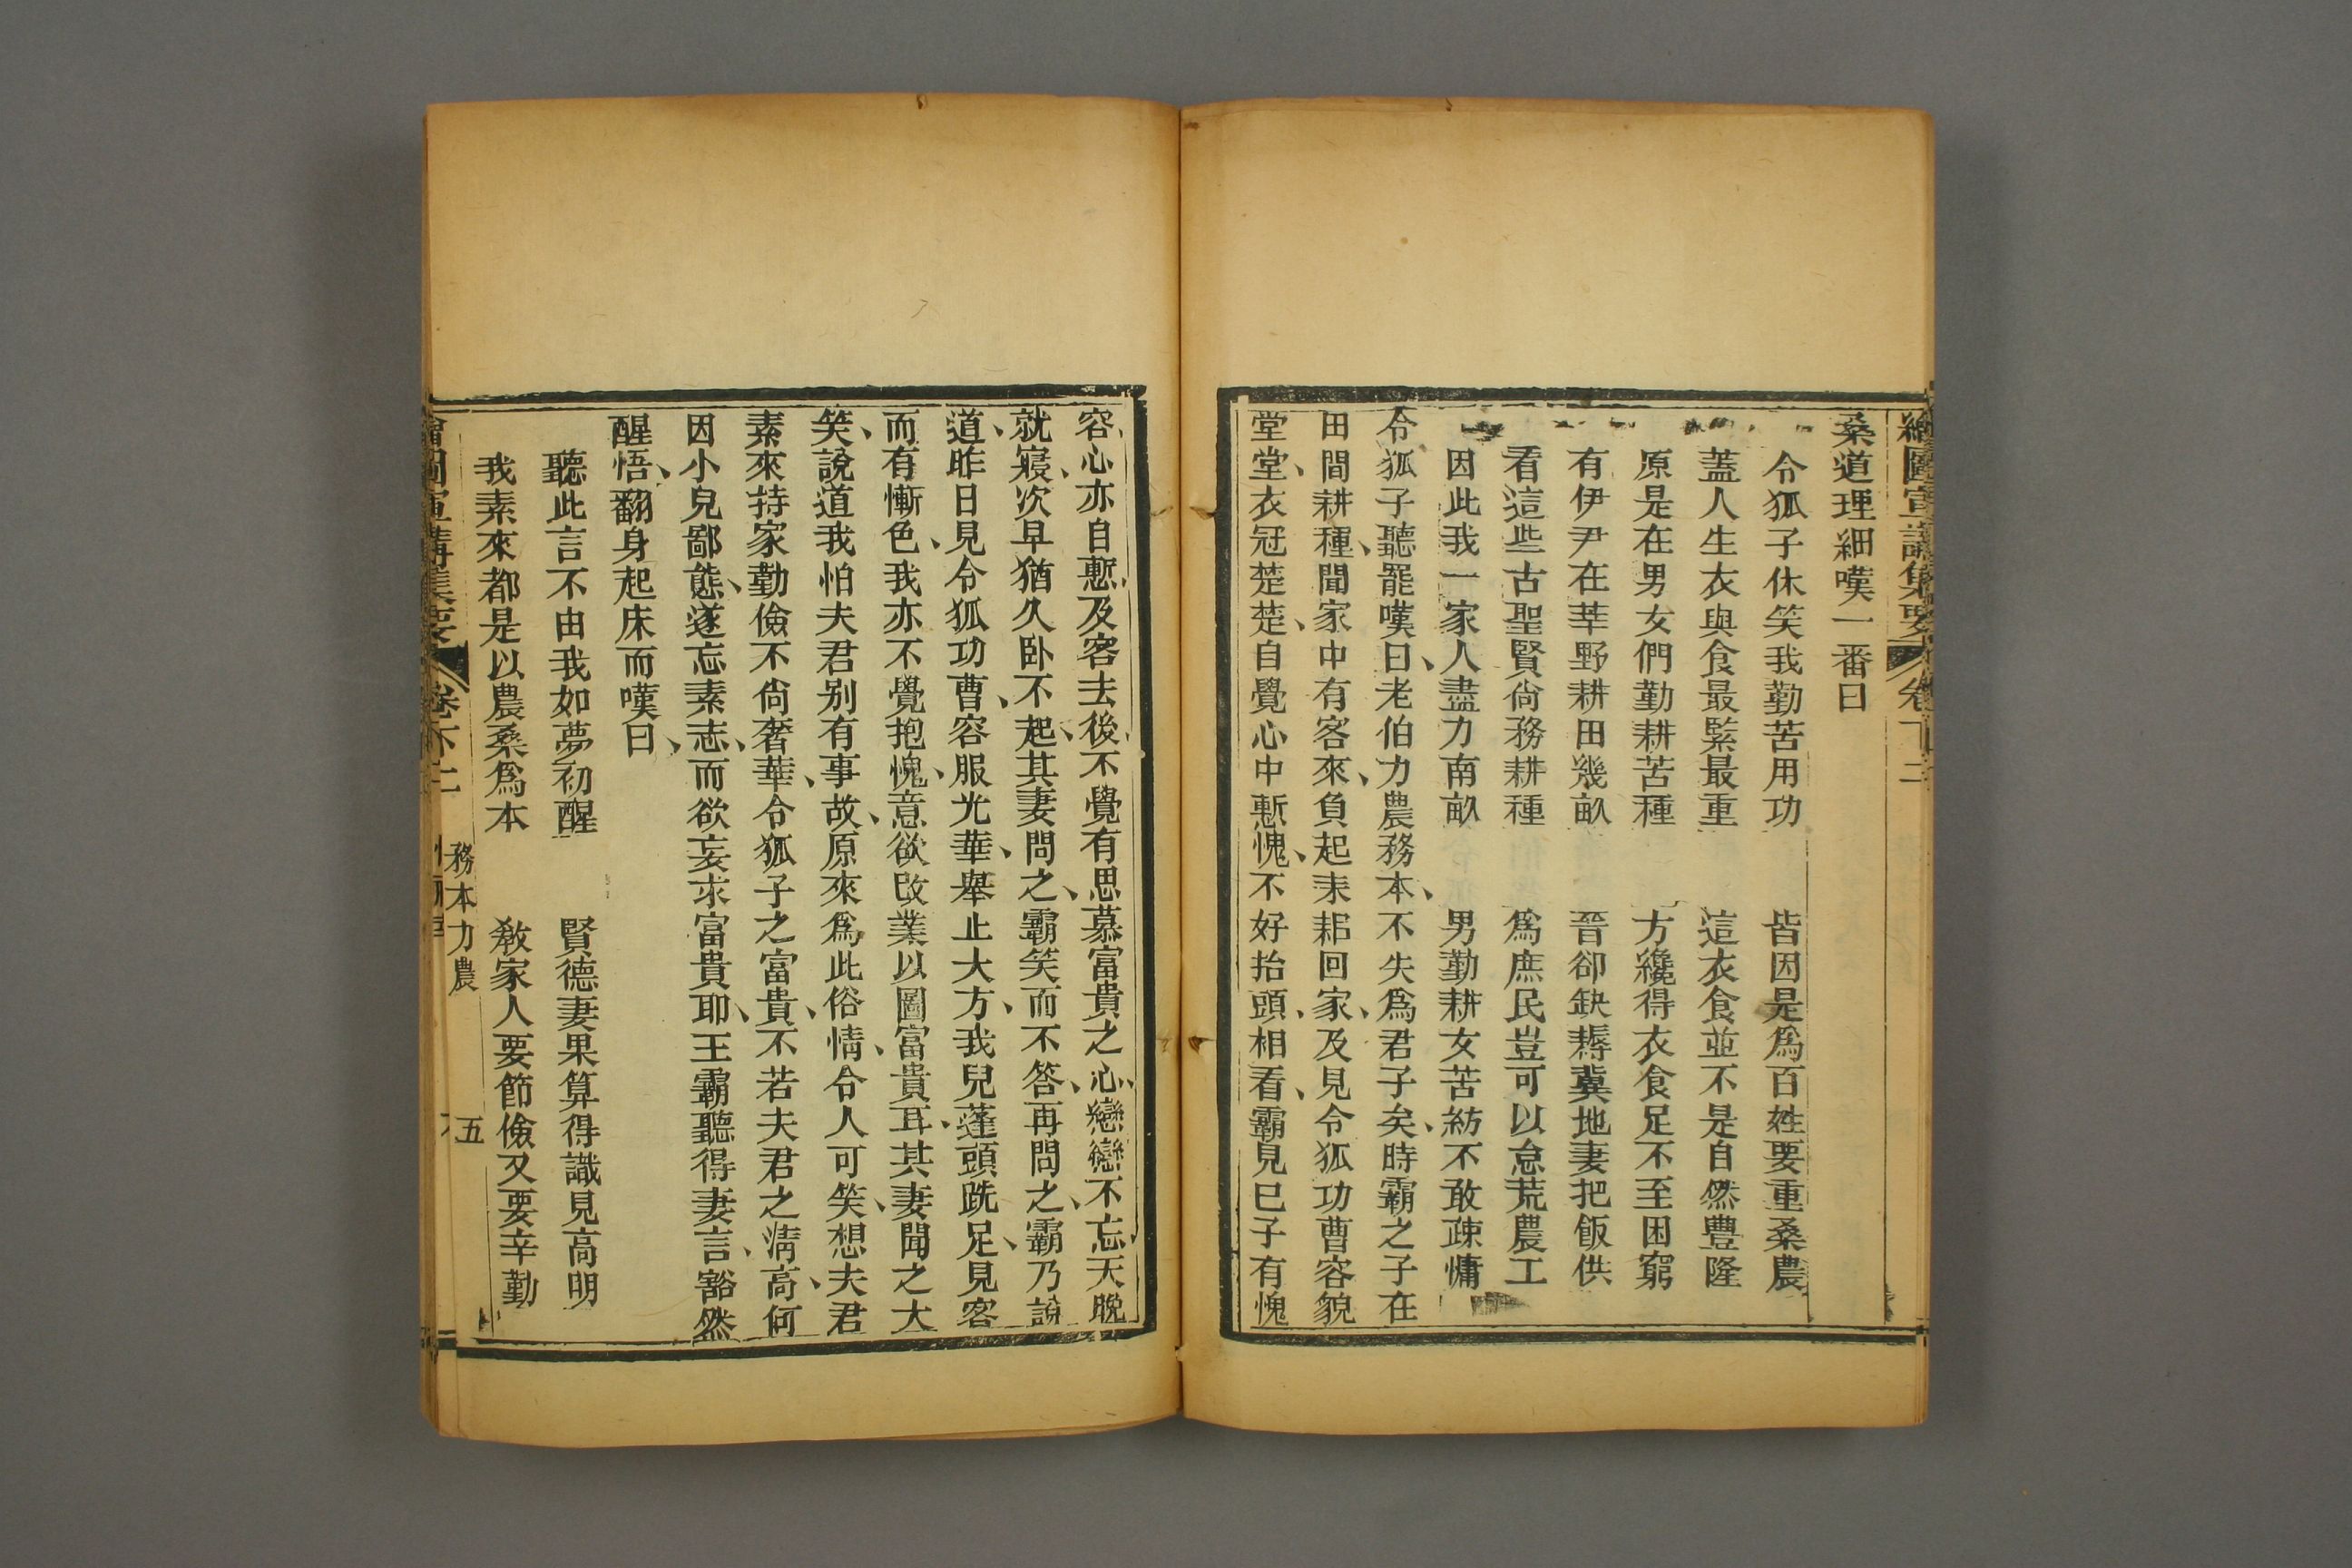 繪圖宣講集要 卷下二
桑道理細嘆一番曰
令狐子休笑我勤苦用功 皆因是爲百姓要重桑農
蓋人生衣與食最緊最重 這衣食並不是自然豐隆
原是在男女們勤耕苦種 方纔得衣食足不至困窮
有伊尹在莘野耕田幾畝 晉卻缺耨冀地妻把飯供
看這些古聖賢尙務耕種 爲庶民豈可以怠荒農工
因此我一家人盡力南畝 男勤耕女苦紡不敢疎慵
令狐子聽罷嘆曰、老伯力農務本、不失爲君子矣、時霸之子在
田間耕種、聞家中有客來、負起耒耜回家、及見令狐功曹容貌
堂堂、衣冠楚楚、自覺心中慙愧、不好抬頭、相看、霸見已子有愧
容、心亦自慙、及客去後、不覺有思慕富貴之心、戀戀不忘、天晚
就寢、次早猶久卧不起、其妻問之、霸笑而不答、再問之、霸乃說
道、昨日見令狐功曹、容服光華、舉止大方、我兒蓬頭跣足、見客
而有慚色、我亦不覺抱愧、意欲改業以圖富貴耳、其妻聞之大
笑、說道我怕夫君别有事故、原來爲此俗情、令人可笑、想夫君
素來持家勤儉不尙奢華、令狐子之富貴、不若夫君之淸高、何
因小兒鄙態、遂忘素志、而欲妄求富貴耶、王霸聽得妻言、豁然
醒悟、翻身起床而嘆曰、
聽此言不由我如夢初醒 賢德妻果算得識見高明
我素來都是以農桑爲本 敎家人要節儉又要辛勤
繪圖宣講集要 卷下二 務本力農 五